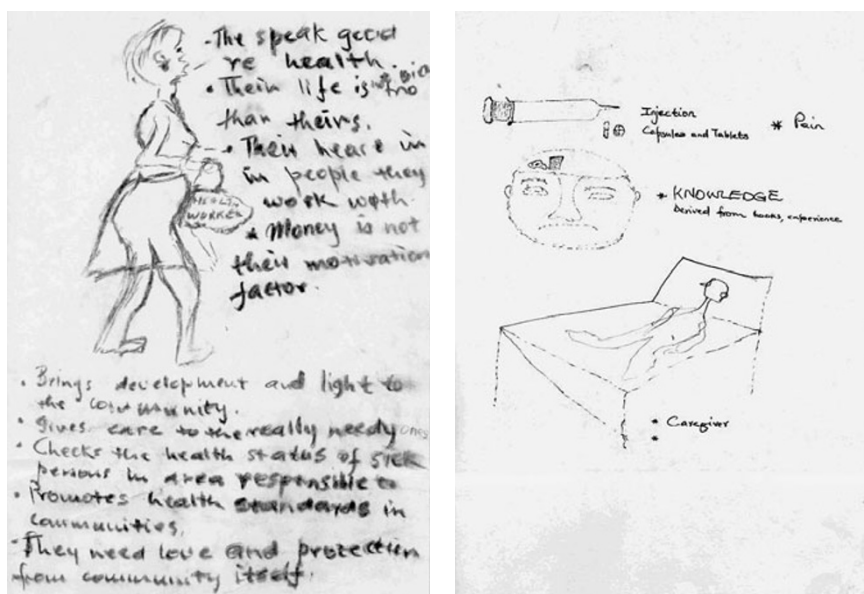 - The speak good
re health.
• Their life is
than theirs.
• Their heart in
in people they
work with.
* Money is not
their motivation
factor.
HEALTH
WORKER
• Brings development and light to
the community.
• Gives care to the really needy ones
• Checks the health status of sick
persons in area responsible to
• Promotes health standards in
communities.
- They need love and protection
from community itself.
Injection
Capsules and Tablets
* Pain
* KNOWLEDGE
Derived from books, experience
* Caregiver
*